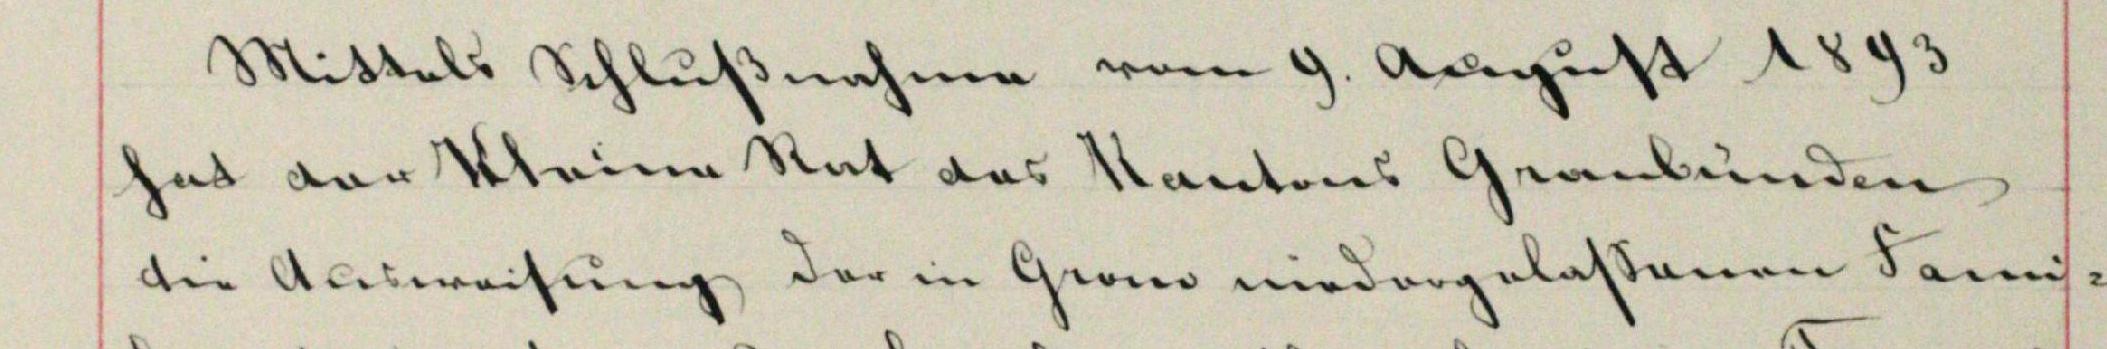 Mittels Schlußnahme vom 9. August 1893
hat der Kleine Rat des Kantons Graubünden
die Ausweisung der in Grono niedergelassenen Fami-